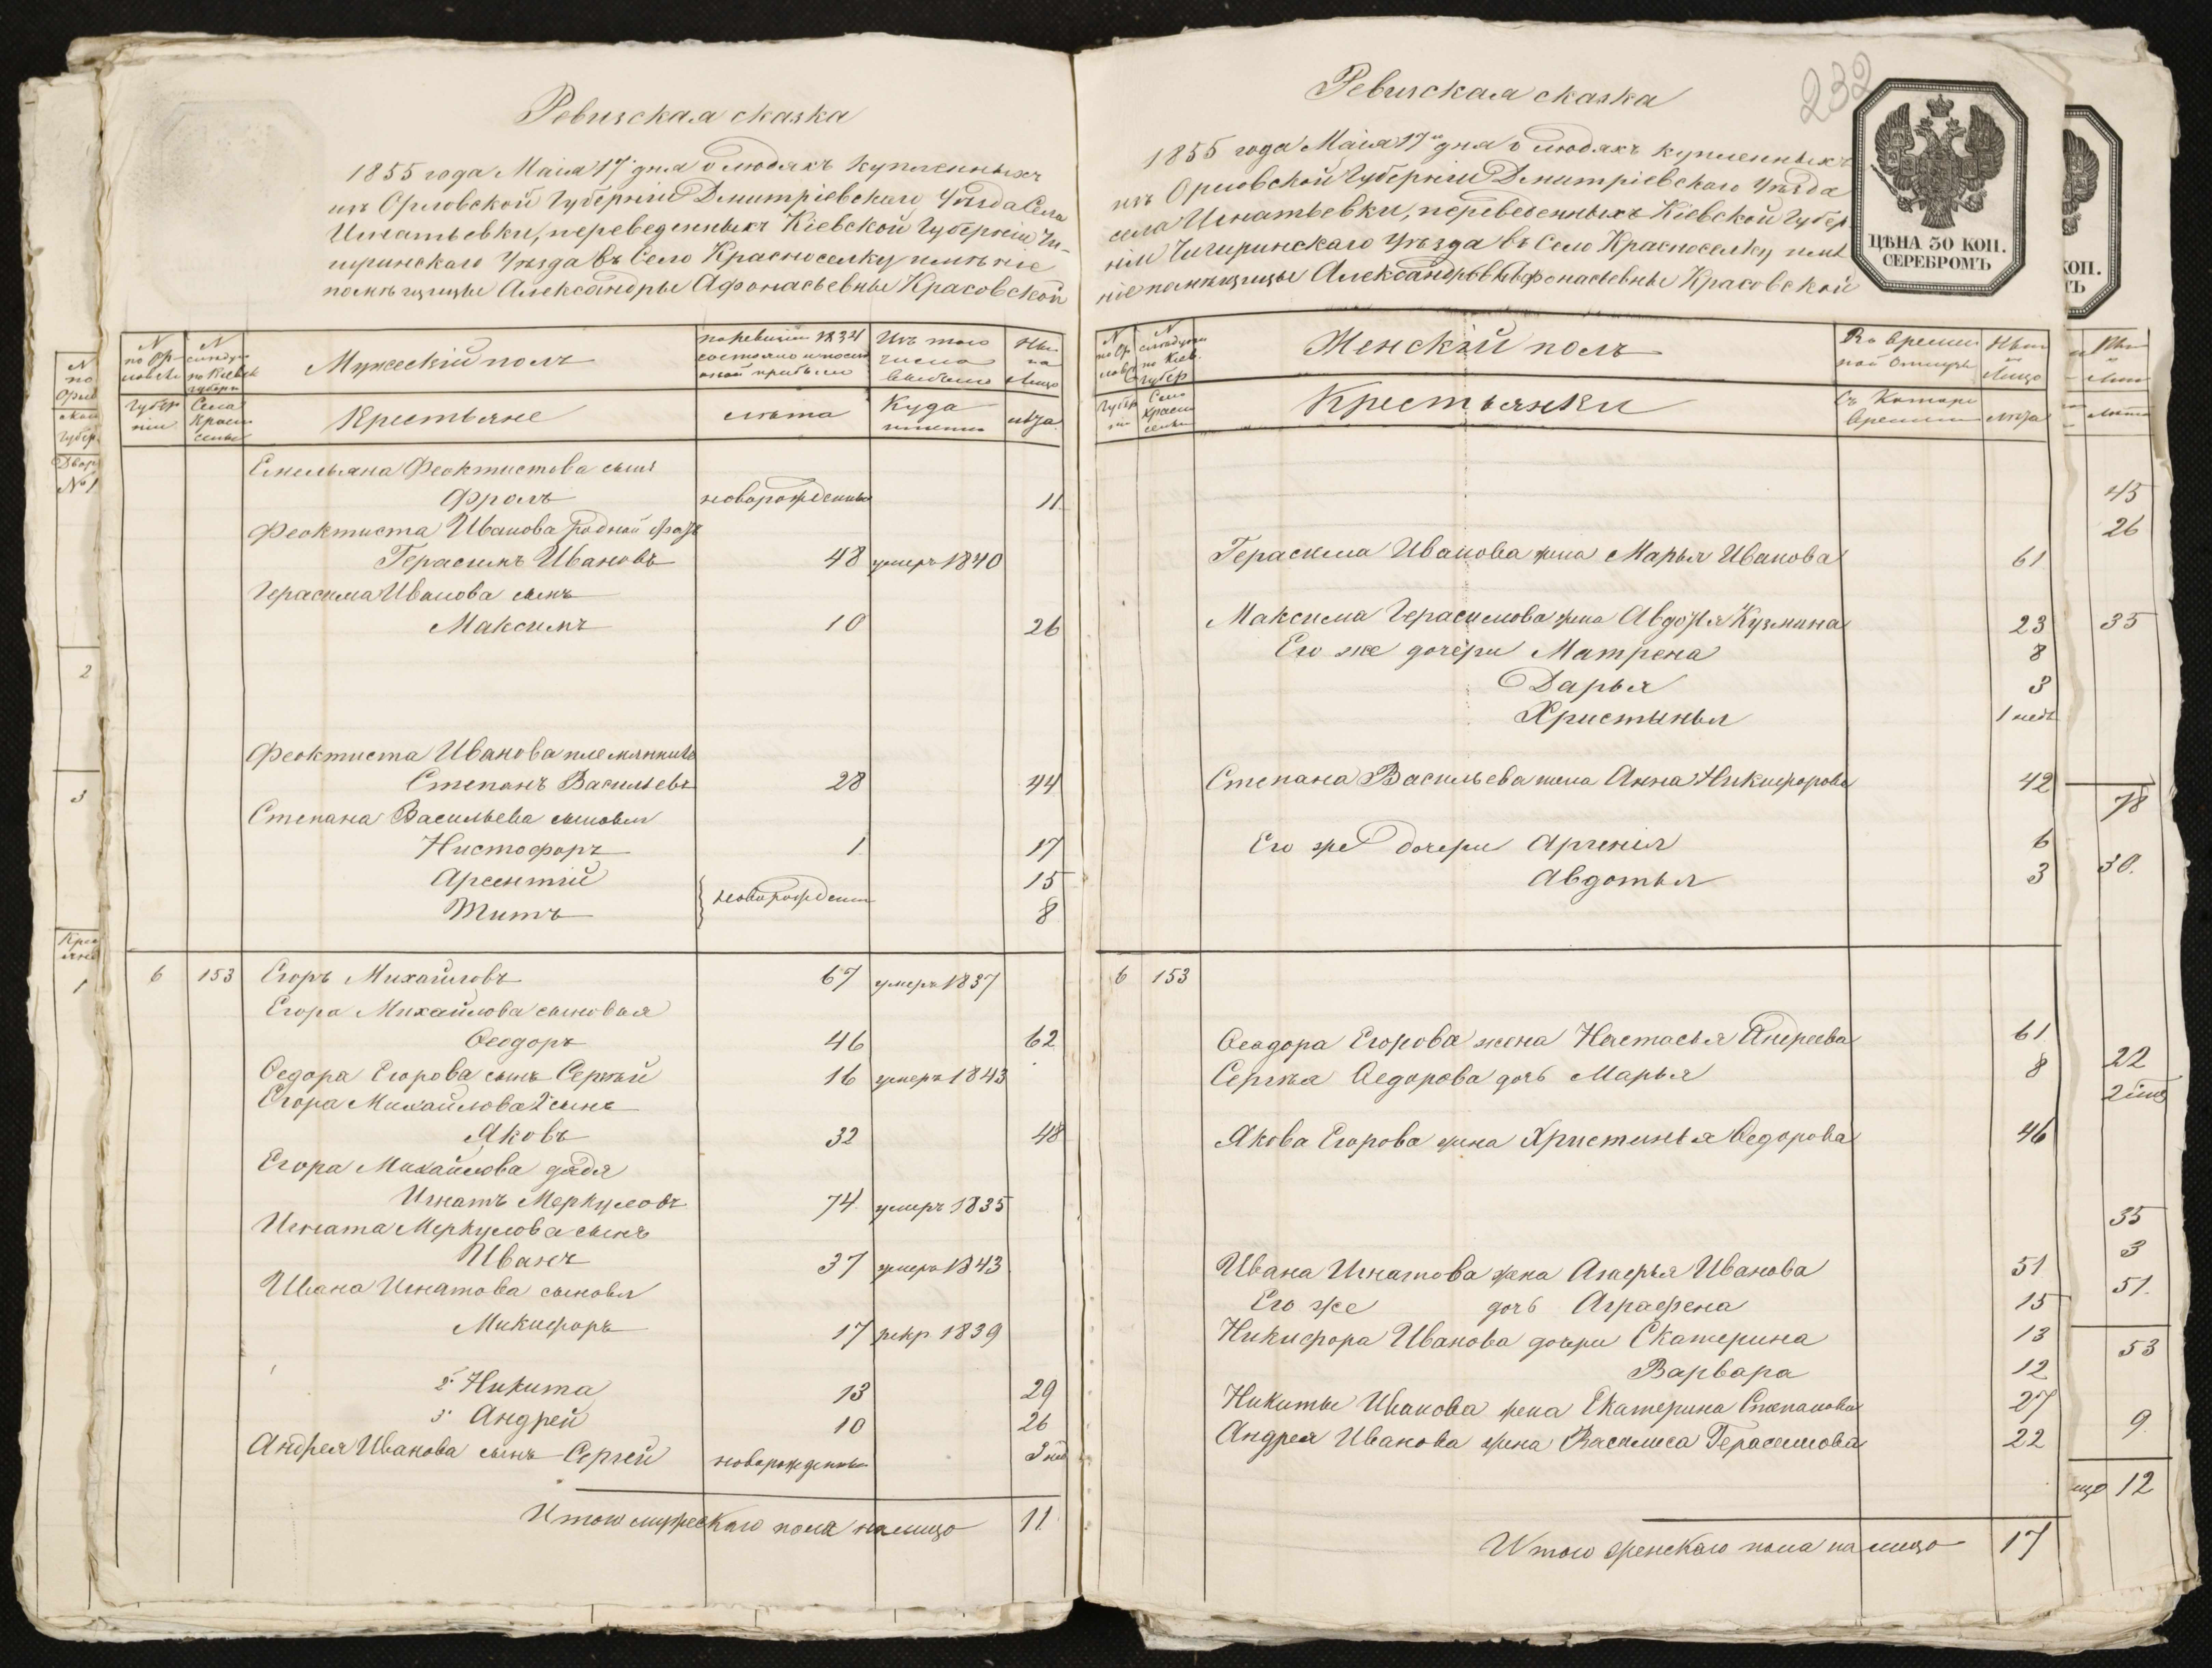 Ревизская сказка
1855 года Маія 17 дня о людяхъ купленныхъ
изъ Орловской Губерніи Дмитріевскаго Уѣзда Села
Игнатьевки, переведенныхъ Кіевской Губерніи Чи-
гиринскаго Уѣзда въ Село Красноселку имѣніе
помѣщицы Александры Афонасьевны Красовской
N по Ор-
ловской
Губер
ніи
N
слѣдую
по Кіевск
губерн
Села
Красн
селки
Мужескій полъ
Крестьяне
по ревизіи 1834
состояло и послѣ
оной прибыло
лѣта
Изъ того
числа
выбыло
Куда
именно
Ны
на
лицо
лѣта
Емельяна Феоктистова сынъ
Фролъ новорожденный 11
Феоктиста Иванова родной братъ
Герасимъ Ивановъ 48 умеръ 1840
Герасима Иванова сынъ
Максимъ 10 26
Феоктиста Иванова племянникъ
Степанъ Васильевъ 28 44
Степана Васильева сыновья
Нистофоръ 1 17
Арсентій 15
новорожден
Титъ 8
6 153 Егоръ Михайловъ 67 умеръ 1837
Егора Михайлова сыновья
Ѳеодоръ 46 62
Ѳедора Егорова сынъ Сергѣй 16 умеръ 1843
Егора Михайлова 2 сынъ
Яковъ 32 48
Егора Михайлова дядя
Игнатъ Меркуловъ 74 умеръ 1835
Игната Меркулова сынъ
Иванъ 37 умеръ 1843
Ивана Игнатова сыновья
Микифоръ 17 рекр 1839
2 Никита 13 29
3 Андрей 10 26
Андрея Иванова сынъ Сергей новорожденный 3 нед
Итого мужескаго пола на лицо 11
232
ЦѢНА 30 КОП.
СЕРЕБРОМЪ
Ревизская сказка
1855 года Маія 17 дня о людяхъ купленныхъ
изъ Орловской Губерніи Дмитріевскаго Уѣзда
села Игнатьевки, переведенныхъ Кіевской Губер
ніи Чигиринскаго Уѣзда въ Село Красноселку имѣ
ніе помѣщицы Александры Афонасьевны Красовской
Женскій полъ
Крестьянки
Во времен
ной отлучкѣ
Съ котораго
времени
Нынѣ
на
лицо
лѣта
Герасима Иванова жена Марья Иванова 61
Максима Герасимова жена Авдотья Кузмина 23
Его же дочери Матрена 8
Дарья 3
Христинья 1 нед
Степана Васильева жена Анна Никифорова 42
Его же дочери 6
Авдотья 3
6 153
Ѳеодора Егорова жена Настасья Андреева 61
Сергѣя Ѳедорова дочь Марья 8
Якова Егорова жена Христинья Ѳедорова 46
Ивана Игнатова жена Агафья Иванова 51
Его же дочь Аграфена 15
Никифора Иванова дочери Екатерина 13
Варвара 12
Никиты Иванова жена Екатерина Степанова 27
Андрея Иванова жена Василиса Герасимова 22
Итого женскаго пола на лицо 17
КОП.
45
26
35
78
30.
22
35
3
51.
53
9
12